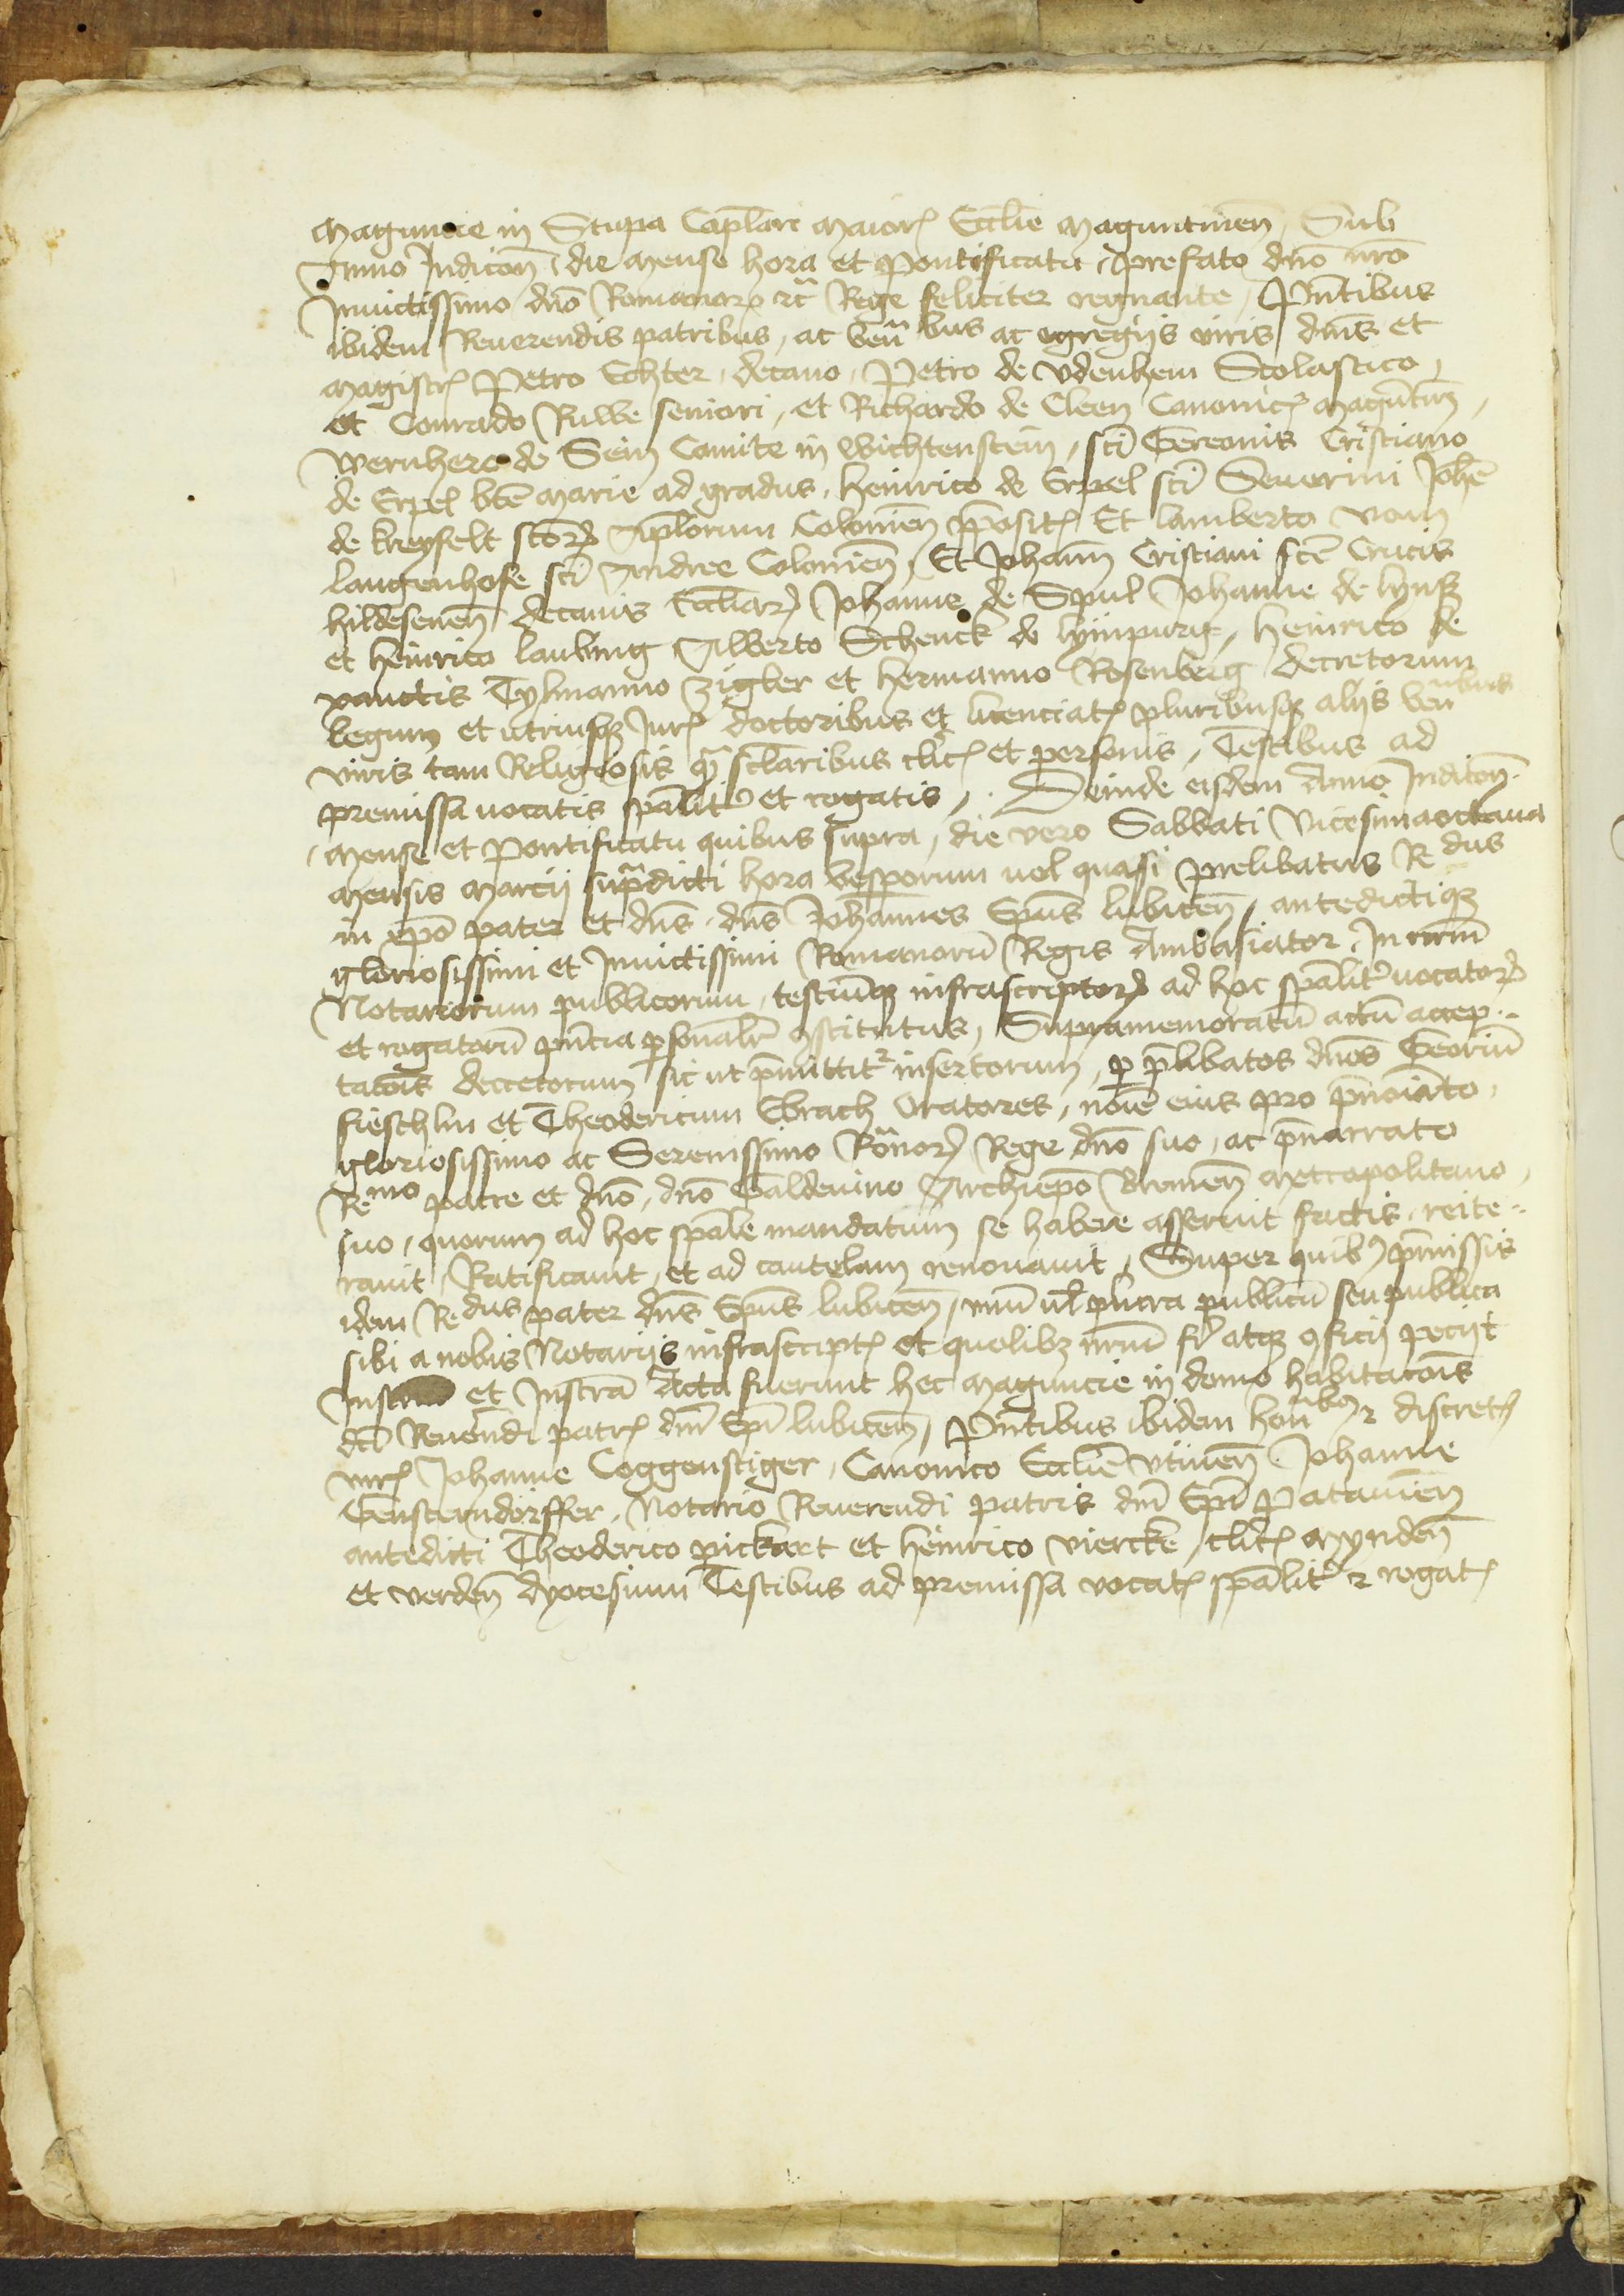 Maguncie in Stupa Capl̄ari maiorꝭ Eccl̄ie Maguntineñ, Sub
Anno Indicōn, die mense hora et Pontificatu, prefato dn̄o nr̄o
Inuictissimo dn̄o Romanorꝝ ꝛc̄ Rege feliciter regnante, Pn̄tibus
ibidem Reuerendis patribus, ac ven̄bus ac egregijs viris dn̄is et
magistrꝭ Petro Echter, decano, Petro de vdenhem Scolastico,
et Conrado Rulbe seniori, et Richardo de Cleen Canonicꝭ magūtin̄,
Wernhero de Sein Comite in Wichtenstein, sct̄i Gereonis Cristiano
de Erpel bt̄e Marie ad gradus, Heinrico de Erpel sct̄i Seuerini Joh̄e
de kreyfelt sctōrꝝ Apl̄orum Colonieñ p̄positꝭ Et lamberto vom
langenhofe sct̄i Andree Colonieñ, Et Johann̄ Cristiani sct̄e Crucis
hildesemeñ decanis Eccl̄iarꝝ Johanne de Spul Johanne de lynsz
et heinrico laubing Alberto Schenck de lympurg, heinrico de
vanctis Tylmanno zigler et Hermanno Rosenberg decretorum
legum et vtriusqꝫ Jurꝭ doctoribus et licenciatꝭ pluribusqꝫ alijs ven̄bus
viris tam Religiosis qꝫ scl̄aribus clic̄ꝭ et personis, Testibus ad
premissa vocatis spāliter et rogatis, . Deinde eisdem Anno Indicōn.
mense et Pontificatu quibus supra, die vero Sabbati vicesimaoctaua
mensis marcij sup̄dicti hora vesperorum vel quasi prelibatus Redus
in xp̄o pater et dn̄s, dn̄s Johannes Ep̄us lubiceñ, antedictiqꝫ
gloriosissimi et Inuictissimi Romanorū Regis Ambasiator, In nr̄m
Notariorum publicorum, testiumqꝫ infrascriptorꝝ ad hoc spāliter vocatorꝝ
et rogatorū pn̄cia ꝑsonalr̄ ꝯstitutus, Supramemoratū actū accep-
tacōis decretorum sic ut p̄mittitr insertorum, ꝑ p̄libatos dn̄os Georiū
fieschlin et Theodericum Ebrach Oratores, noīe eius pro p̄noīato,
gloriosissimo ac Serenissimo Rōnorꝝ Rege dn̄o suo, ac p̄narrato
Remo patre et dn̄o, dn̄o Galdewino Archiep̄o Bremeñ metropolitano,
suo, quorum ad hoc spāle mandatum se habere asseruit factis, reite-
rauit, Ratificauit, et ad cautelam renouauit, Super quibꝫ p̄missis
idem Redus pater dn̄s Ep̄us lubiceñ, vnū vl̄ plura publicū seu publica
sibi a nobis Notarijs infrascriptꝭ et quolibꝫ nr̄m fi atqꝫ ꝯfici pecijt
et Instra Acta fuerunt hec maguncie in domo habitacōis
dc̄i Reuerēdi patrꝭ dn̄i Ep̄i lubiceñ, Pn̄tibus ibidem hon̄bꝫ ꝛ discretꝭ
virꝭ Johanne Coggenstiger, Canonico Eccl̄ie vtineñ. Johanne
Genstterndorffer, Notario Reuerendi patris dn̄i Ep̄i Patauieñ
antedicti Theoderico pickart et heinrico viercke, clic̄ꝭ myndeñ
et verdeñ dyocesium Testibus ad premissa vocatꝭ spāliter ꝛ rogatꝭ